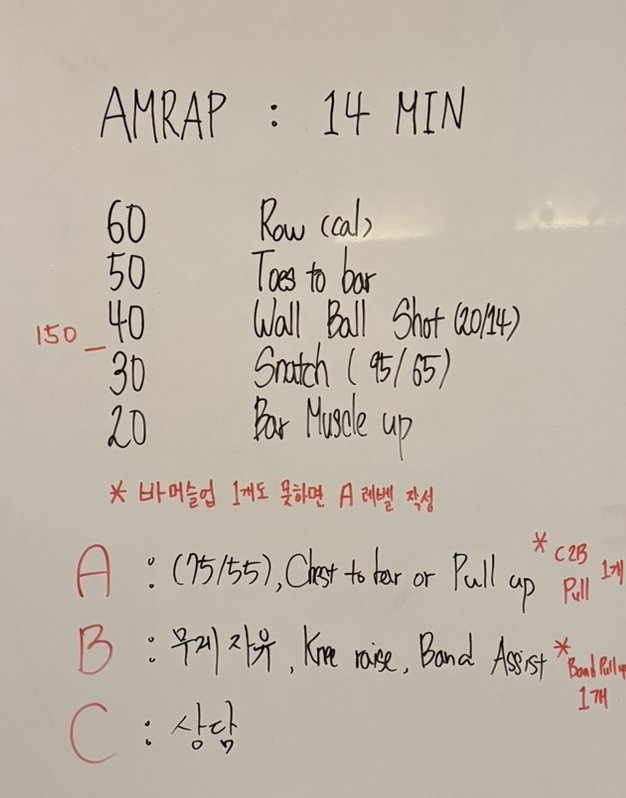 AMRAP : 14 MIN
60 Row (cal)
50 Toes to bar
40 Wall Ball Shot (20/14)
150
30 Snatch (95/65)
20 Bar Muscle up
* 바머슬업 1개도 못하면 A 레벨 작성
A : (75/55), Chest to bar or Pull up * C2B Pull 1개
B : 무게 자유, Knee raise, Band Assist * Band Pull up 1개
C : 상담